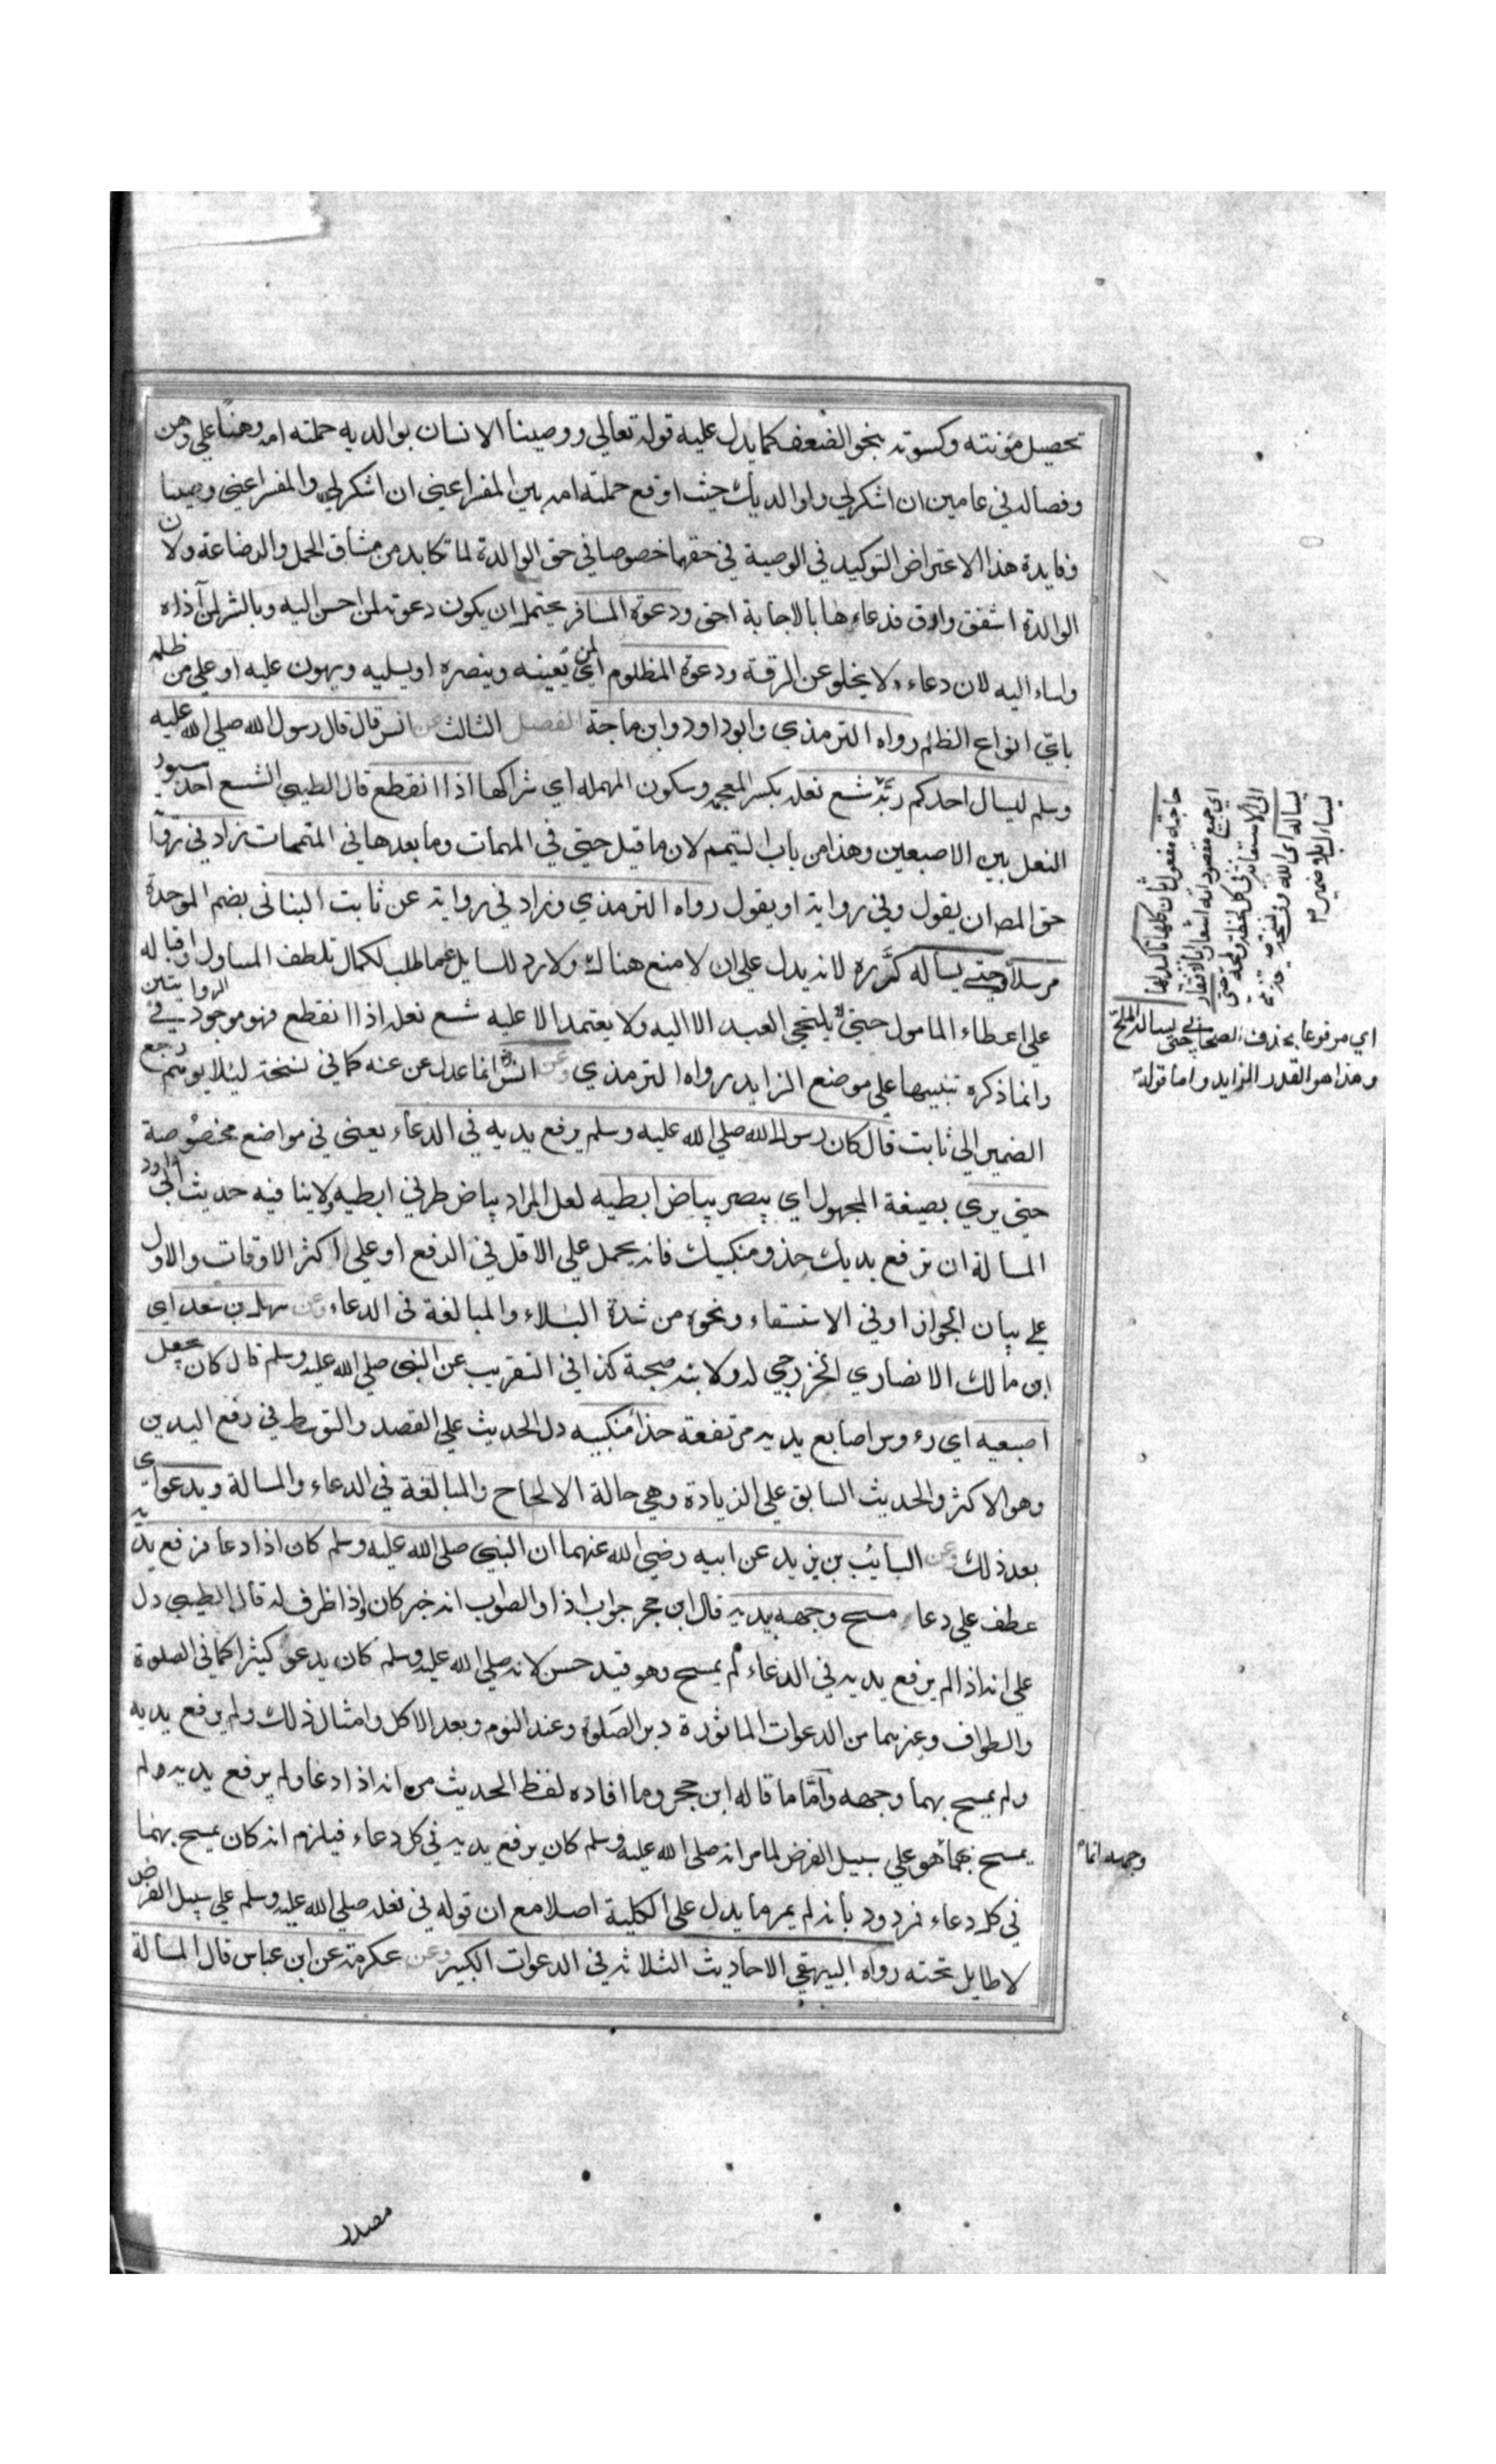 تحصيل مؤنته وكسوته بنحو الضعف كما يدل عليه قوله تعالى ووصينا الانسان بوالديه حملته امه وهنا علي وهن
وفصاله في عامين ان اشكر لي ولوالديك حيث اوقع حملته امه بين المفسر اعني ان اشكر لي والمفسر اعني وصينا
وفايدة هذا الاعتراض التوكيد في الوصية في حقهما خصوصا في حق الوالدة لما تكابد من مشاق الحمل والرضاعة ولان
الوالدة اشفق وارق فدعاءها بالاجابة احق ودعوة المسافر يحتمل ان يكون دعوته لمن احسن اليه وبالشر لمن آذاه
واساء اليه لان دعاءه لا يخلو عن الرقة ودعوة المظلوم اي لمن يعينه وينصره او يسليه ويهون عليه او علي من ظلمه
باي انواع الظلم رواه الترمذي وابو داود وابن ماجة الفصل الثالث عن انس قال قال رسول الله صلي الله عليه
وسلم ليسال احدكم ربه شسع نعله بكسر المعجمة وسكون المهملة اي شراكها اذا انقطع قال الطيبي الشسع احد سيور
النعل بين الاصبعين وهذا من باب التتميم لان ما قبل حتي في المهمات وما بعدها في المتممات زاد في
حق المص ان يقول وفي رواية او يقول رواه الترمذي وزاد في رواية عن ثابت البناني بضم الموحدة
مرسلا حتي يسأله كرره لانه يدل علي ان لا منع هناك ولا رد للسايل عما طلب لكمال تلطف المسول واقباله
علي اعطاء المامول حتي يلتجي العبد الا اليه ولا يعتمد الا عليه شسع نعله اذا انقطع فهو موجود في الروايتين
وانما ذكره تنبيها علي موضع الزايد رواه الترمذي وعن انس انما عدل عن عنه كما في نسخة ليلا يوهم رجع
الضمير الي ثابت قال كان رسول الله صلي الله عليه وسلم يرفع يديه في الدعاء يعني في مواضع مخصوصة
حتي يري بصيغة المجهول اي يبصر بياض ابطيه لعل المراد بياض طرفي ابطيه ولا ينافيه حديث ابي داود
المسالة ان ترفع يديك حذو منكبيك فانه يحمل علي الاقل في الرفع او علي اكثر الاوقات والاول
علي بيان الجواز او في الاستسقاء ونحوه من شدة البلاء والمبالغة في الدعاء وعن سهل بن سعد اي
ابن مالك الانصاري الخزرجي له ولابيه صحبة كذا في التقريب عن النبي صلي الله عليه وسلم قال كان يجعل
اصبعيه اي رءوس اصابع يديه مرتفعة حذاء منكبيه دل الحديث علي القصد والتوسط في رفع اليدين
وهو الاكثر والحديث السابق علي الزيادة وهي حالة الالحاح والمبالغة في الدعاء والمسالة ويدعو اي
بعد ذلك وعن السائب بن يزيد عن ابيه رضي الله عنهما ان النبي صلي الله عليه وسلم كان اذا دعا فرفع يديه
عطف علي دعا مسح وجهه بيديه قال ابن حجر جواب اذا والصواب انه خبر كان واذا ظرف له قال الطيبي دل
علي انه اذا لم يرفع يديه في الدعاء لم يمسح وهو قيد حسن لانه صلي الله عليه وسلم كان يدعو كثيرا كما في الصلوة
والطواف وغيرهما من الدعوات الماثورة دبر الصلوة وعند النوم وبعد الاكل وامثال ذلك ولم يرفع يديه
ولم يمسح بهما وجهه وأما ما قاله ابن حجر وما افاده لفظ الحديث من انه اذا دعا ولم يرفع يديه لم
يمسح بهما هو علي سبيل الفرض لما مر انه صلي الله عليه وسلم كان يرفع يديه في كل دعاء فيلزم انه كان يمسح بهما
في كل دعاء فمردود بانه لم يمر ما يدل علي الكلية اصلا مع ان قوله في نعله صلي الله عليه وسلم علي سبيل الفرض
لا طايل تحته رواه البيهقي الاحاديث الثلاثة في الدعوات الكبير وعن عكرمة عن ابن عباس قال المسالة
حاجته مفعول ثان كلها تاكيد لها
اي جميع مقصوداته اشعارا بالافتقار
الي الاستعانة في كل لحظة ولمحة حتي
يساله اي الله وفي نسخة
اي مرفوعا بحذف الصحابي حتي يساله الملح
وهذا هو القدر الزايد واما قوله
وجهه انما
مصدر